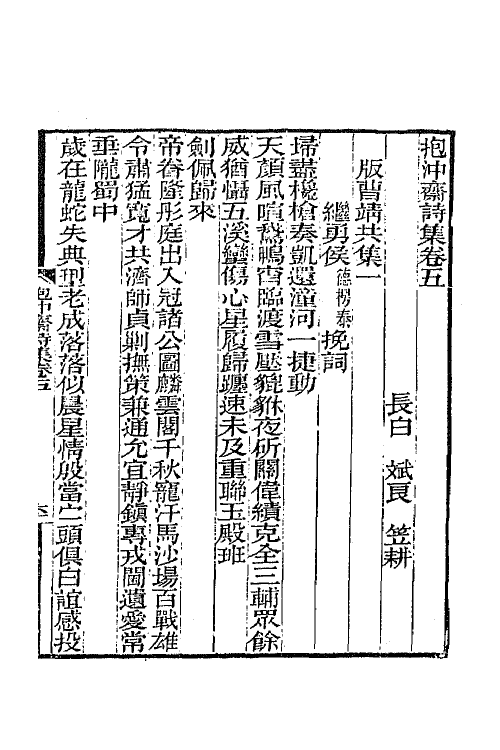 抱沖齋詩集卷五
長白 斌良 笠耕
版曹靖共集一
繼勇侯德楞泰挽詞
埽盡欃槍奏凱還潼河一捷動
天顏風喧鵞鸛宵臨渡雪壓貔貅夜斫關偉績克全三輔眾餘
威猶懾五溪蠻傷心星履歸躔速未及重聯玉殿班
劍佩歸來
帝眷隆彤庭出入冠諸公圖麟雲閣千秋寵汗馬沙場百戰雄
令肅猛寬才共濟師貞剿撫策兼通允宜靜鎮專戎閫遺愛常
垂隴蜀中
歲在龍蛇失典型老成落落似晨星情殷當宁頭俱白誼感投
抱沖齋詩集卷五